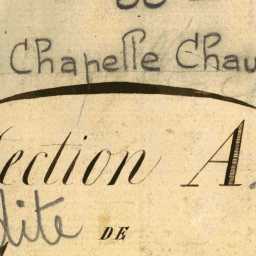 Chapelle Chau
ection A.
dite DE